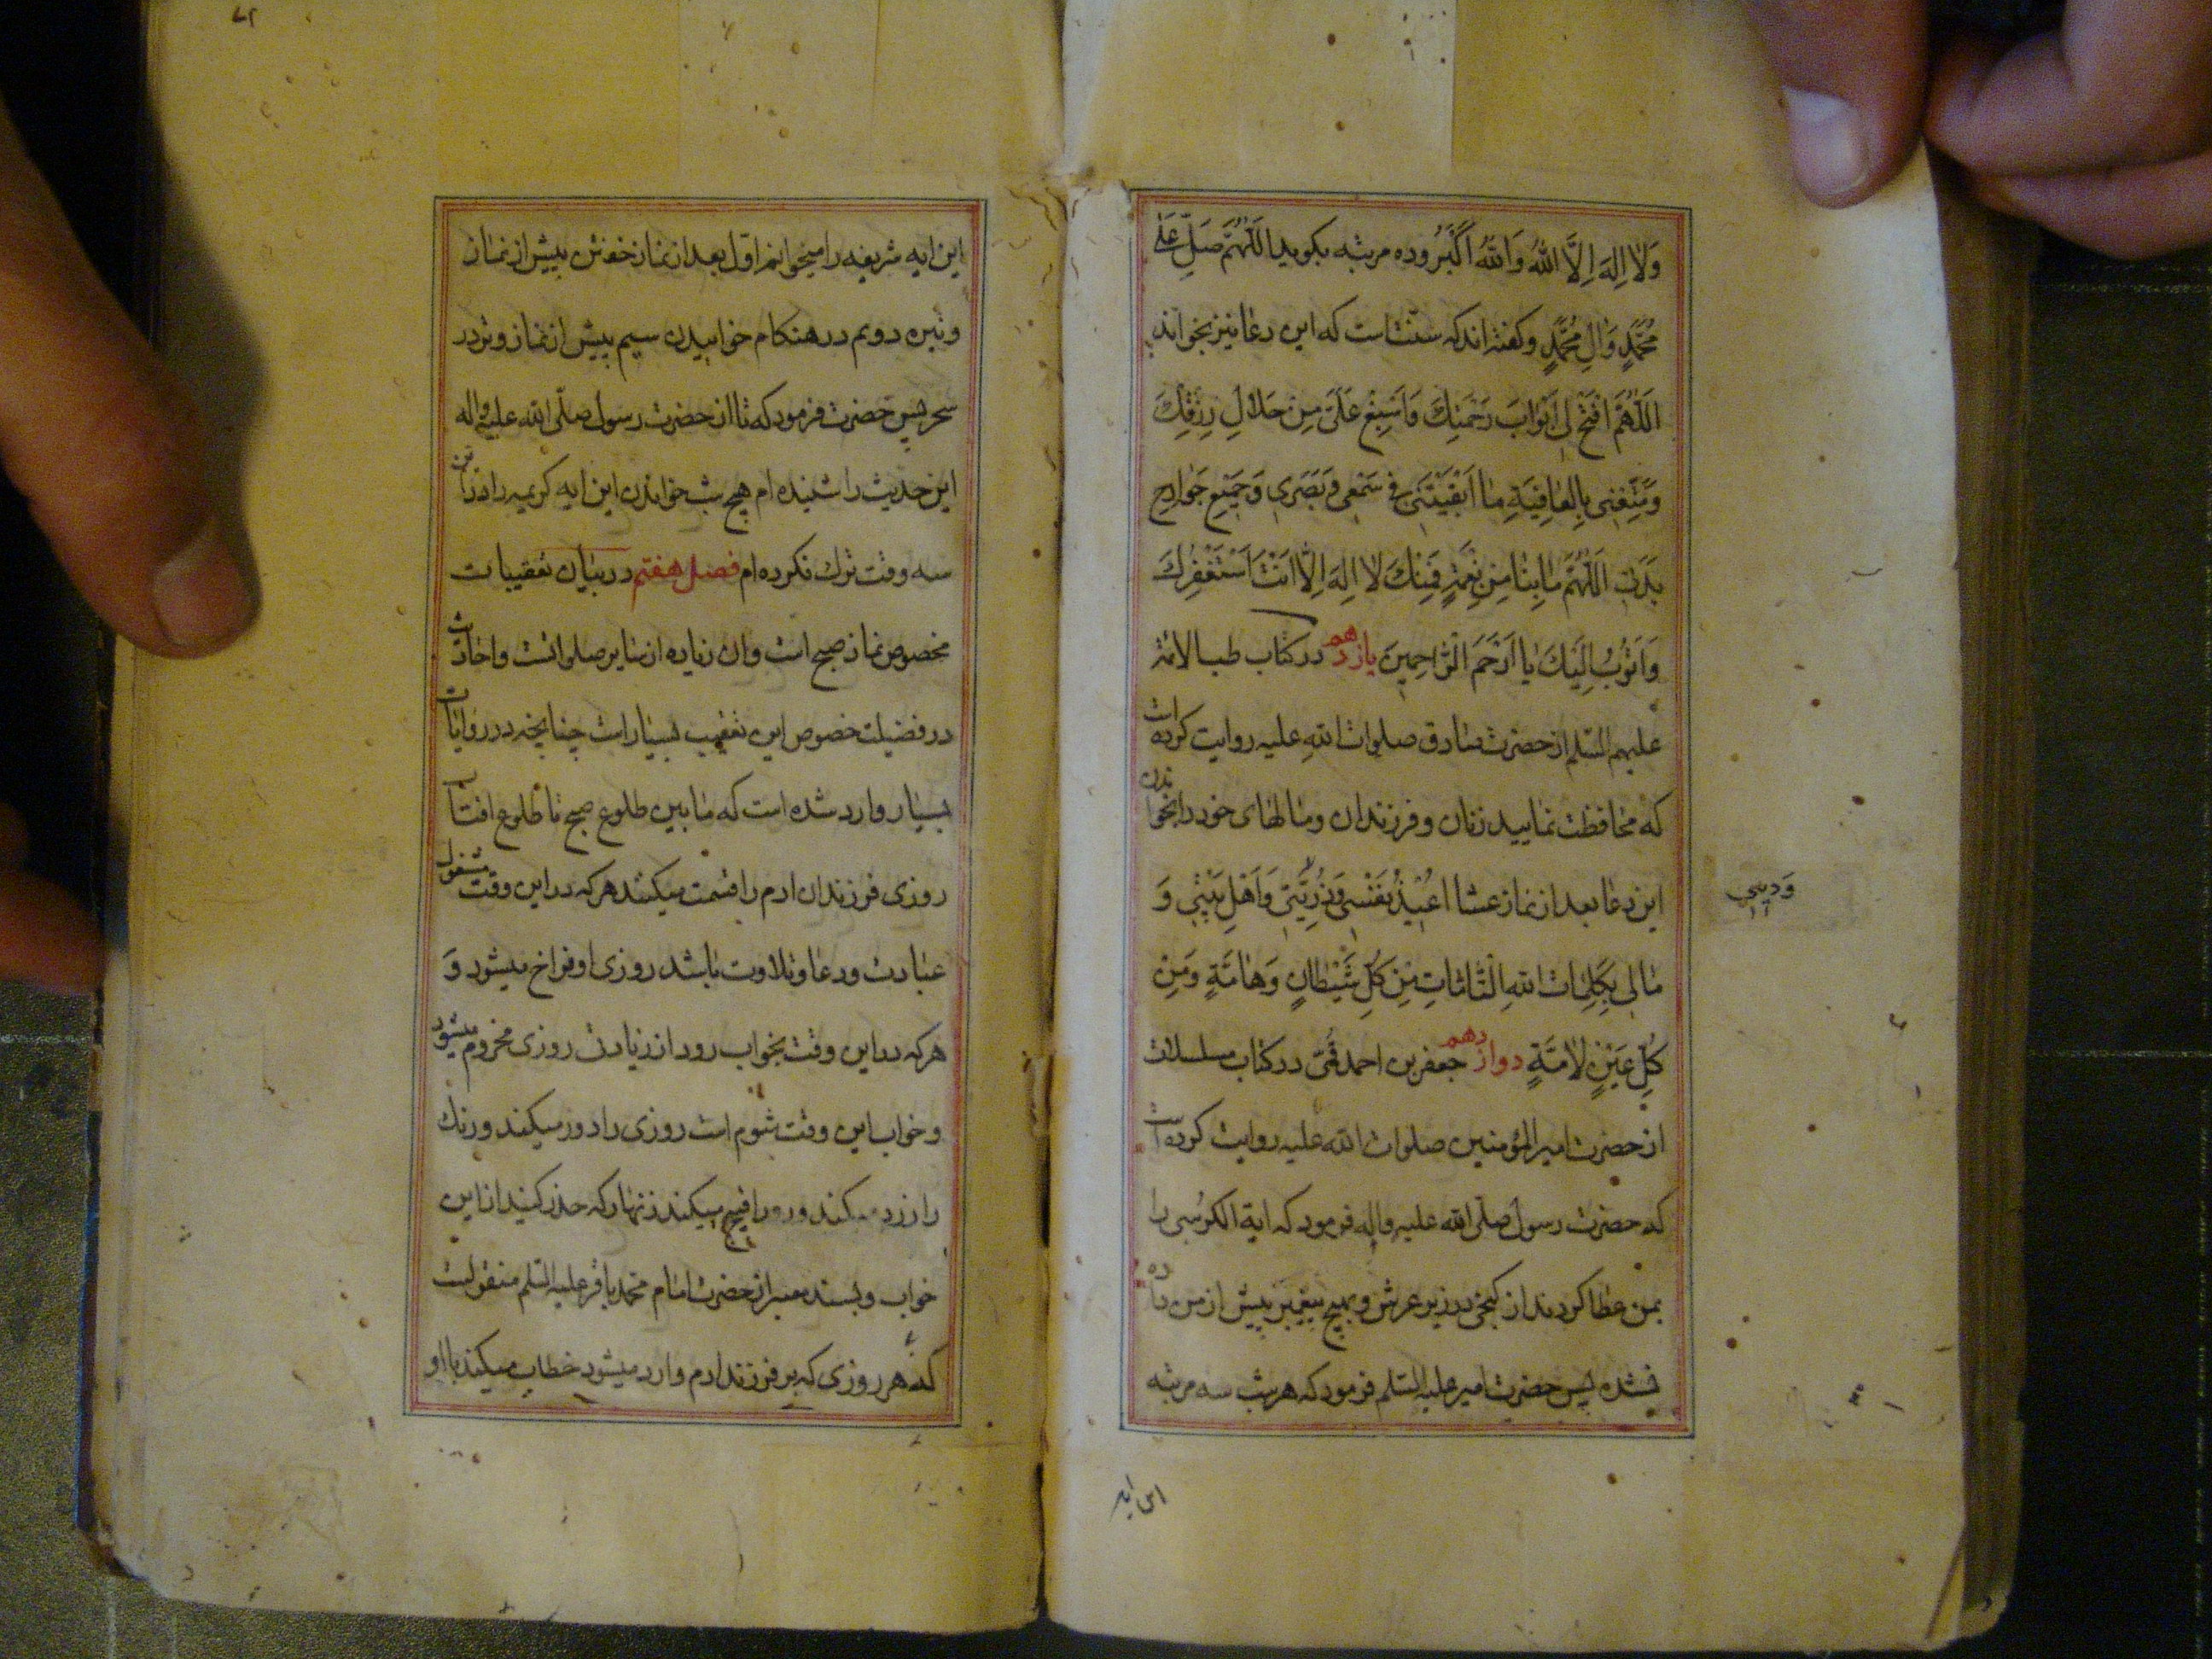 وَلا اِلهَ اِلَّا اللهُ وَاللهُ اَكْبَرُ وده مرتبه بكويد اللّهُمَّ صَلِّ عَلى
مُحَمَّدٍ وَالِ مُحَمَّدٍ وكفته اند كه سنّت است كه اين دعا نيز بخواند
اَللّهُمَّ افْتَحْ لى اَبْوابَ رَحْمَتِكَ وَاَسْبِغْ عَلَىَّ مِنْ حَلالِ رِزْقِكَ
وَمَتِّعْنى بِالعافِيَةِ ما اَبْقَيْتَنى فى سَمْعى وَبَصَرى وَجَميعِ جَوارِحِ
بَدَنى اَللّهُمَّ ما بِنا مِنْ نِعْمَةٍ فَمِنْكَ لا اِلهَ اِلّا اَنْتَ اَسْتَغْفِرُكَ
وَاَتُوبُ اِلَيْكَ يا اَرْحَمَ الرّاحِمينَ يازدهم در كتاب طب الائمة
عليهم السّلم از حضرت صادق صلوات الله عليه روايت كرده است
كه محافظت نماييد زنان و فرزندان ومالهاى خود را بخواندن
اين دعا بعد از نماز عشا اُعيذُ نَفْسى وَذُرِّيَّتى وَاَهْلِ بَيْتى وَ
مالى بِكَلِماتِ اللهِ التّامّاتِ مِنْ كُلِّ شَيْطانٍ وَهامَّةٍ وَمِنْ
كُلِّ عَيْنٍ لامَّةٍ دوازدهم جعفر بن احمد قمّى در كتاب مسلسلات
از حضرت امير المؤمنين صلوات الله عليه روايت كرده است
كه حضرت رسول صلّى الله عليه واله فرمود كه اية الكرسى را
بمن عطا كردند از كنجى در زير عرش و بهيچ پيغمبر پيش از من داده
نشده پس حضرت امير عليه السّلم فرمود كه هر شب سه مرتبه
اين ايه
وَدينى
اين ايه شريفه را ميخوانم اوّل بعد از نماز خفتن پيش از نماز
وتيره دويم در هنكام خوابيدن سيم پيش از نماز وتر در
سحر پس حضرت فرمود كه تا از حضرت رسول صلّى الله عليه واله
اين حديث را شنيده ام هيچ شب خواندن اين ايه كريمه را در اين
سه وقت ترك نكرده ام فصل هفتم در بيان تعقيبات
مخصوص نماز صبح است وان زياده از ساير صلوات است واحاديث
در فضيلت خصوص اين تعقيب بسيار است چنانچه در روايات
بسيار وارد شده است كه ما بين طلوع صبح تا طلوع افتاب
روزى فرزندان ادم را قسمت ميكنند هر كه در اين وقت مشغول
عبادت ودعا وتلاوت باشد روزى او فراخ ميشود وَ
هر كه در اين وقت بخواب رود از زيادتى روزى محروم ميشود
وخواب اين وقت شوم است روزى را دور ميكند ورنك
را زرد ميكند ورو را قبيح ميكند زنهار كه حذر كنيد از اين
خواب وبسند معتبر از حضرت امام محمد باقر عليه السّلم منقولست
كه هر روزى كه بر فرزند ادم وارد ميشود خطاب ميكند با او